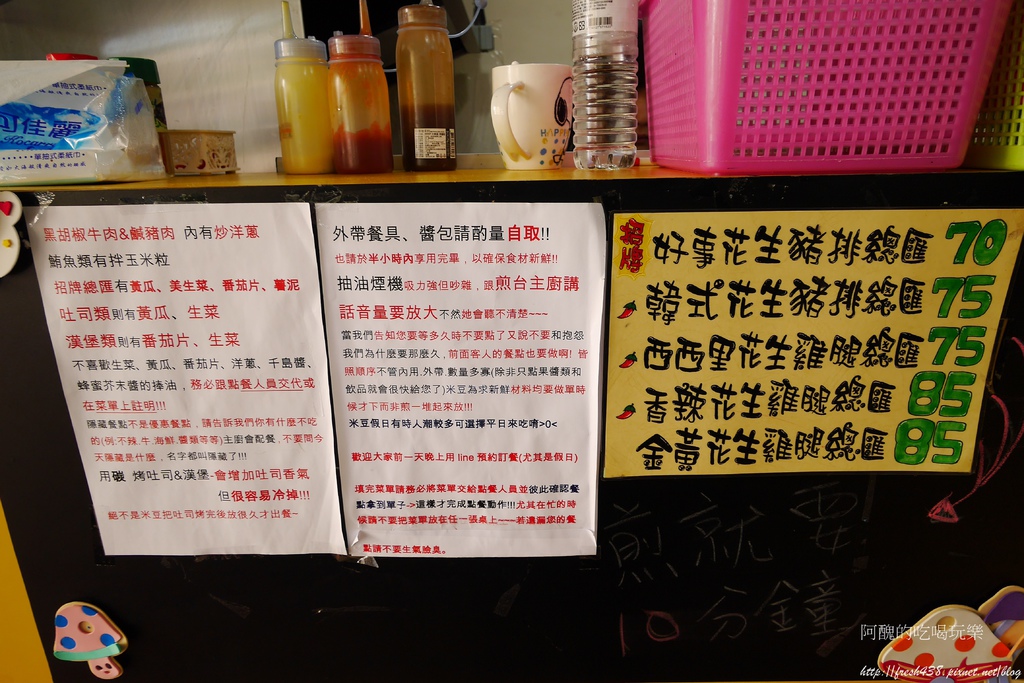 單抽式柔紙巾
可佳麗
單抽式柔紙巾
HAPPY
黑胡椒牛肉&鹹豬肉 內有炒洋蔥
鮪魚類有拌玉米粒
招牌總匯有黃瓜、美生菜、番茄片、薯泥
吐司類則有黃瓜、生菜
漢堡類則有番茄片、生菜
不喜歡生菜、黃瓜、番茄片、洋蔥、千島醬、
蜂蜜芥末醬的捧油，務必跟點餐人員交代或
在菜單上註明!!!
隱藏餐點不是優惠餐點，請告訴我們你有什麼不吃
的(例:不辣.牛.海鮮.醬類等等)主廚會配餐,不要問今
天隱藏是什麼，名字都叫隱藏了!!!
用碳 烤吐司&漢堡-會增加吐司香氣
但很容易冷掉!!!
絕不是米豆把吐司烤完後放很久才出餐~
外帶餐具、醬包請酌量自取!!
也請於半小時內享用完畢，以確保食材新鮮!!
抽油煙機吸力強但吵雜，跟煎台主廚講
話音量要放大不然她會聽不清楚~~~
當我們告知您要等多久時不要點了又說不要和抱怨
我們為什麼要那麼久,前面客人的餐點也要做啊! 皆
照順序不管內用.外帶.數量多寡(除非只點果醬類和
飲品就會很快給您了)米豆為求新鮮材料均要做單時
候才下而非煎一堆起來放!!!
米豆假日有時人潮較多可選擇平日來吃唷>0<
歡迎大家前一天晚上用 line 預約訂餐(尤其是假日)
填完菜單請務必將菜單交給點餐人員並彼此確認餐
點拿到單子->這樣才完成點餐動作!!!尤其在忙的時
候請不要把菜單放在任一張桌上~~~若遺漏您的餐
點請不要生氣臉臭。
招牌 好事花生豬排總匯 70
韓式花生豬排總匯 75
西西里花生雞腿總匯 75
香辣花生雞腿總匯 85
金黃花生雞腿總匯 85
煎就要
10分鐘
阿醜的吃喝玩樂
http://fresh438.pixnet.net/blog